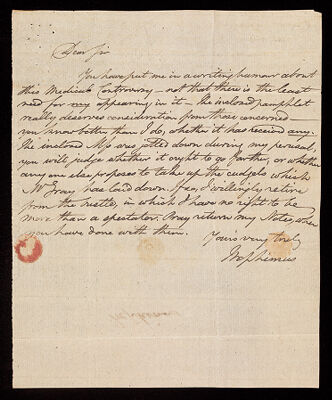 Dear Sir
You have put me in a writing humour about
this Medical Controversy – not that there is the least
need for my appearing in it – the inclosed pamphlet
really deserves consideration from those concerned –
you know better than I do, whether it has received any.
The inclosed M.S. was jotted down during my perusal,
you will judge whether it ought to go farther, or whether
any one else proposes to take up the cudgels which
Mr Gray has laid down. If so, I willingly retire
from the rustle, in which I have no right to be
more than a spectator. Pray return my Notes, when
you have done with them.
Your's very truly